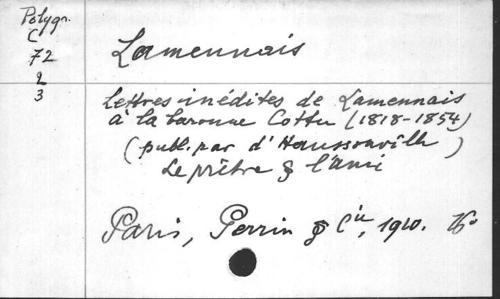 Polygr.
C
72
2
3
Lamennais
Lettres inédites de Lamennais
à la baronne Cottu (1818-1854)
(publ. par d'Haussonville)
Le prêtre & l'ami
Paris, Perrin & Cie, 1910.